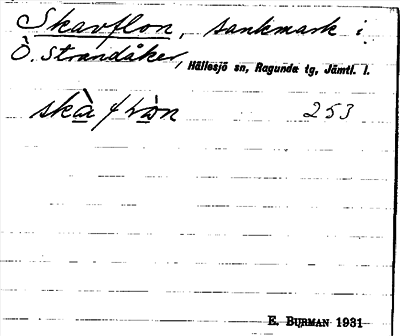 Skavflon, sankmark i
Ö. Strandåker, Hällesjö sn, Ragunda tg, Jämtl. l.
253
E. BURMAN 1931